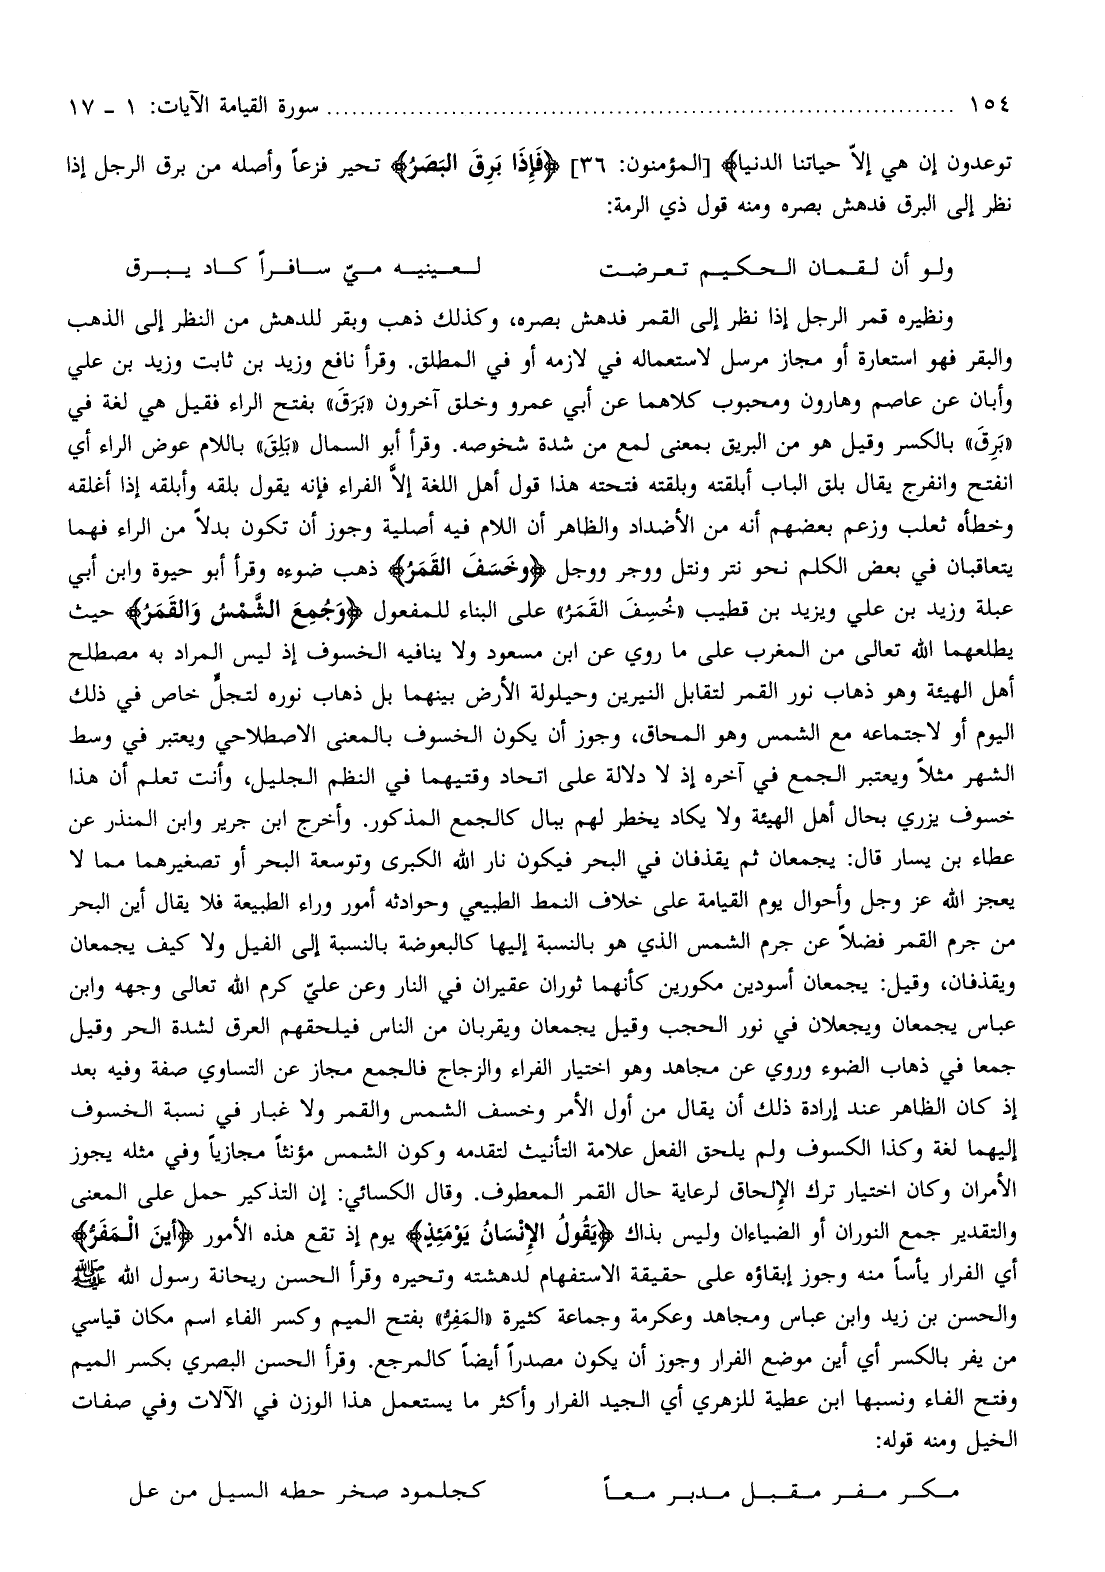 ١٥٤ ........................................................ سورة القيامة الآيات: ١ - ١٧
توعدون إن هي إلاّ حياتنا الدنيا﴾ [المؤمنون: ٣٦] ﴿فَإِذَا بَرِقَ البَصَرُ﴾ تحير فزعاً وأصله من برق الرجل إذا
نظر إلى البرق فدهش بصره ومنه قول ذي الرمة:
ولو أن لقمان الحكيم تعرضت لعينيه ميّ سافراً كاد يبرق
ونظيره قمر الرجل إذا نظر إلى القمر فدهش بصره، وكذلك ذهب وبقر للدهش من النظر إلى الذهب
والبقر فهو استعارة أو مجاز مرسل لاستعماله في لازمه أو في المطلق. وقرأ نافع وزيد بن ثابت وزيد بن علي
وأبان عن عاصم وهارون ومحبوب كلاهما عن أبي عمرو وخلق آخرون «بَرَقَ» بفتح الراء فقيل هي لغة في
«بَرِقَ» بالكسر وقيل هو من البريق بمعنى لمع من شدة شخوصه. وقرأ أبو السمال «بَلِقَ» باللام عوض الراء أي
انفتح وانفرج يقال بلق الباب أبلقته وبلقته فتحته هذا قول أهل اللغة إلاَّ الفراء فإنه يقول بلقه وأبلقه إذا أغلقه
وخطأه ثعلب وزعم بعضهم أنه من الأضداد والظاهر أن اللام فيه أصلية وجوز أن تكون بدلاً من الراء فهما
يتعاقبان في بعض الكلم نحو نتر ونتل ووجر ووجل ﴿وخَسَفَ القَمَرُ﴾ ذهب ضوءه وقرأ أبو حيوة وابن أبي
عبلة وزيد بن علي ويزيد بن قطيب «خُسِفَ القَمَرُ» على البناء للمفعول ﴿وَجُمِعَ الشَّمْسُ وَالقَمَرُ﴾ حيث
يطلعهما الله تعالى من المغرب على ما روي عن ابن مسعود ولا ينافيه الخسوف إذ ليس المراد به مصطلح
أهل الهيئة وهو ذهاب نور القمر لتقابل النيرين وحيلولة الأرض بينهما بل ذهاب نوره لتجلٍّ خاص في ذلك
اليوم أو لاجتماعه مع الشمس وهو المحاق، وجوز أن يكون الخسوف بالمعنى الاصطلاحي ويعتبر في وسط
الشهر مثلاً ويعتبر الجمع في آخره إذ لا دلالة على اتحاد وقتيهما في النظم الجليل، وأنت تعلم أن هذا
خسوف يزري بحال أهل الهيئة ولا يكاد يخطر لهم ببال كالجمع المذكور. وأخرج ابن جرير وابن المنذر عن
عطاء بن يسار قال: يجمعان ثم يقذفان في البحر فيكون نار الله الكبرى وتوسعة البحر أو تصغيرهما مما لا
يعجز الله عز وجل وأحوال يوم القيامة على خلاف النمط الطبيعي وحوادثه أمور وراء الطبيعة فلا يقال أين البحر
من جرم القمر فضلاً عن جرم الشمس الذي هو بالنسبة إليها كالبعوضة بالنسبة إلى الفيل ولا كيف يجمعان
ويقذفان، وقيل: يجمعان أسودين مكورين كأنهما ثوران عقيران في النار وعن عليّ كرم الله تعالى وجهه وابن
عباس يجمعان ويجعلان في نور الحجب وقيل يجمعان ويقربان من الناس فيلحقهم العرق لشدة الحر وقيل
جمعا في ذهاب الضوء وروي عن مجاهد وهو اختيار الفراء والزجاج فالجمع مجاز عن التساوي صفة وفيه بعد
إذ كان الظاهر عند إرادة ذلك أن يقال من أول الأمر وخسف الشمس والقمر ولا غبار في نسبة الخسوف
إليهما لغة وكذا الكسوف ولم يلحق الفعل علامة التأنيث لتقدمه وكون الشمس مؤنثاً مجازياً وفي مثله يجوز
الأمران وكان اختيار ترك الإلحاق لرعاية حال القمر المعطوف. وقال الكسائي: إن التذكير حمل على المعنى
والتقدير جمع النوران أو الضياءان وليس بذاك ﴿يَقُولُ الإِنْسَانُ يَوْمَئِذٍ﴾ يوم إذ تقع هذه الأمور ﴿أَينَ الْمَفَرُّ﴾
أي الفرار يأساً منه وجوز إبقاؤه على حقيقة الاستفهام لدهشته وتحيره وقرأ الحسن ريحانة رسول الله ﷺ
والحسن بن زيد وابن عباس ومجاهد وعكرمة وجماعة كثيرة «المَفِرُّ» بفتح الميم وكسر الفاء اسم مكان قياسي
من يفر بالكسر أي أين موضع الفرار وجوز أن يكون مصدراً أيضاً كالمرجع. وقرأ الحسن البصري بكسر الميم
وفتح الفاء ونسبها ابن عطية للزهري أي الجيد الفرار وأكثر ما يستعمل هذا الوزن في الآلات وفي صفات
الخيل ومنه قوله:
مكر مفر مقبل مدبر معاً كجلمود صخر حطه السيل من عل